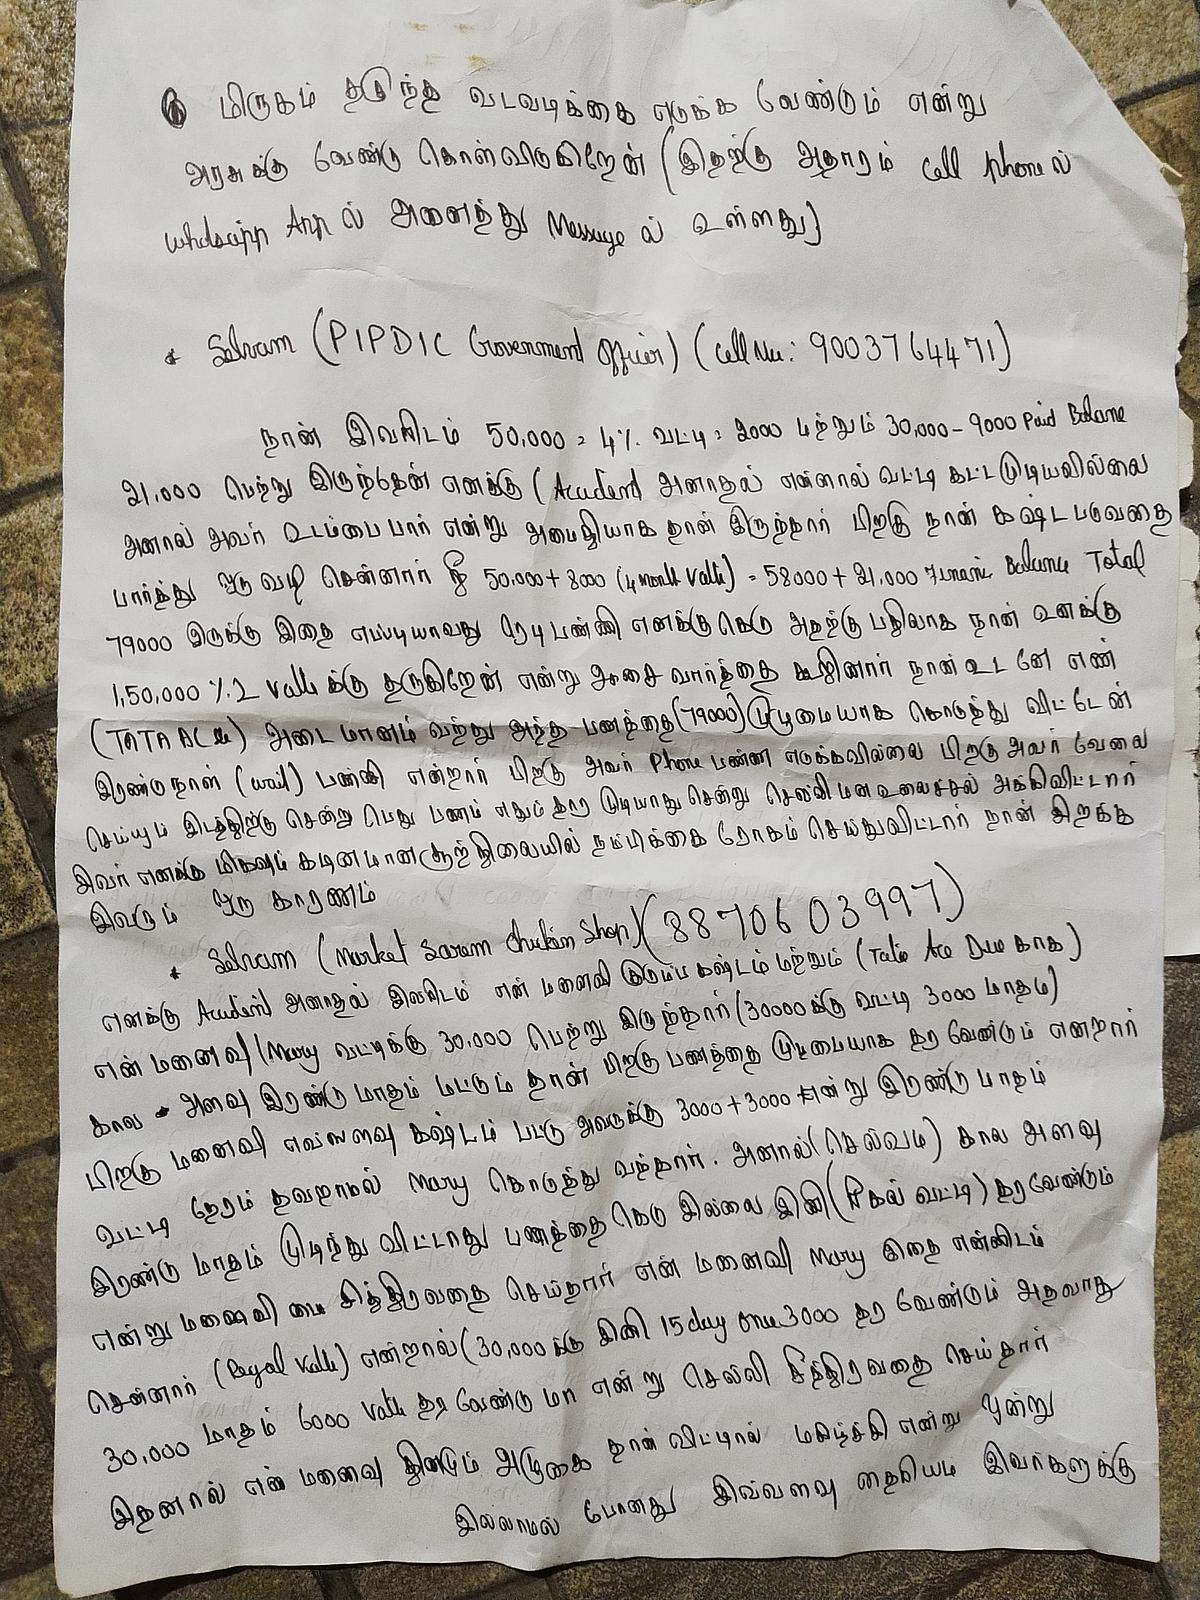 மிருகம் தகுந்த வடவடிக்கை எடுக்க வேண்டும் என்று
அரசுக்கு வேண்டு கொள்விடுகிறேன் (இதற்கு அதாரம் Cell phone ல்
whatsapp App ல் அனைத்து Message ல் உள்ளது)
* Selvam (PIPDIC Government Officer) (Cell No: 9003764471)
நான் இவரிடம் 50,000 = 4% வட்டி = 2000 மற்றும் 30,000 - 9000 Paid Balance
21,000 பெற்று இருந்தேன் எனக்கு (Accident அனாதல் என்னால் வட்டி கட்ட முடியவில்லை
அனால் அவர் உடம்பை பார் என்று அமைதியாக தான் இருந்தார் பிறகு நான் கஷ்ட படுவதை
பார்த்து ஒரு வழி சென்னார் நீ 50,000 + 8000 (4 month Vatti) = 58000 + 21,000 Balance Total
79000 இருக்கு இதை எப்படியாவது ரேடி பண்ணி எனக்கு கெடு அதற்கு பதிலாக நான் உனக்கு
1,50,000 %.2 Vatti க்கு தருகிறேன் என்று ஆசை வார்த்தை கூறினார் நான் உடனே எண்
(TATA ACe) அடை மானம் வந்து அந்த பணத்தை (79000) முழுமையாக கொடுத்து விட்டேன்
இரண்டு நாள் (wait) பண்ணி என்றார் பிறகு அவர் Phone பண்ண எடுக்கவில்லை பிறகு அவர் வேலை
செய்யும் இடத்திற்கு சென்று பெது பணம் எதும் தர முடியாது சென்று செல்லி மன உலைச்சல் அக்கிவிட்டார்
இவர் எனக்கு மிகவும் கடினமான சூழ்நிலையில் நம்பிக்கை ரோகம் செய்துவிட்டார் நான் இறக்க
இவரும் ஒரு காரணம்
* Selvam (Market Saram Chicken Shop) (88706 03997)
எனக்கு Accident அனாதல் இவரிடம் என் மனைவி குடும்ப கஷ்டம் மற்றும் (Tata Ace Due காக)
என் மனைவு (Mary வட்டிக்கு 30,000 பெற்று இருந்தார் (30000க்கு வட்டி 3000 மாதம்)
கால அளவு இரண்டு மாதம் மட்டும் தான் பிறகு பணத்தை முழுமையாக தர வேண்டும் என்றார்
பிறகு மனைவி எவ்வளவு கஷ்டம் பட்டு அவருக்கு 3000 + 3000 என்று இரண்டு மாதம்
வட்டி நேரம் தவறாமல் Mary கொடுத்து வந்தார். அனால் (செல்வம்) கால அளவு
இரண்டு மாதம் முடிந்து விட்டாது பணத்தை கெடு இல்லை இனி (வட்டி) தர வேண்டும்
என்று மணைவி யை சித்திரவதை செய்தார் என் மனைவி Mary இதை என்னிடம்
சென்னார் (Vatti) என்றால் (30,000க்கு இனி 15 day 3000 தர வேண்டும் அதவாது
30,000 மாதம் 6000 Vatti தர வேண்டுமா என்று செல்லி சித்திரவதை செய்தார்
இதனால் என் மனைவு தினமும் அழுகை தான் விட்டால் மகிழ்ச்சி என்று ஒன்று
இல்லாமல் போனது இவ்வளவு தைரியம் இவர்களுக்கு